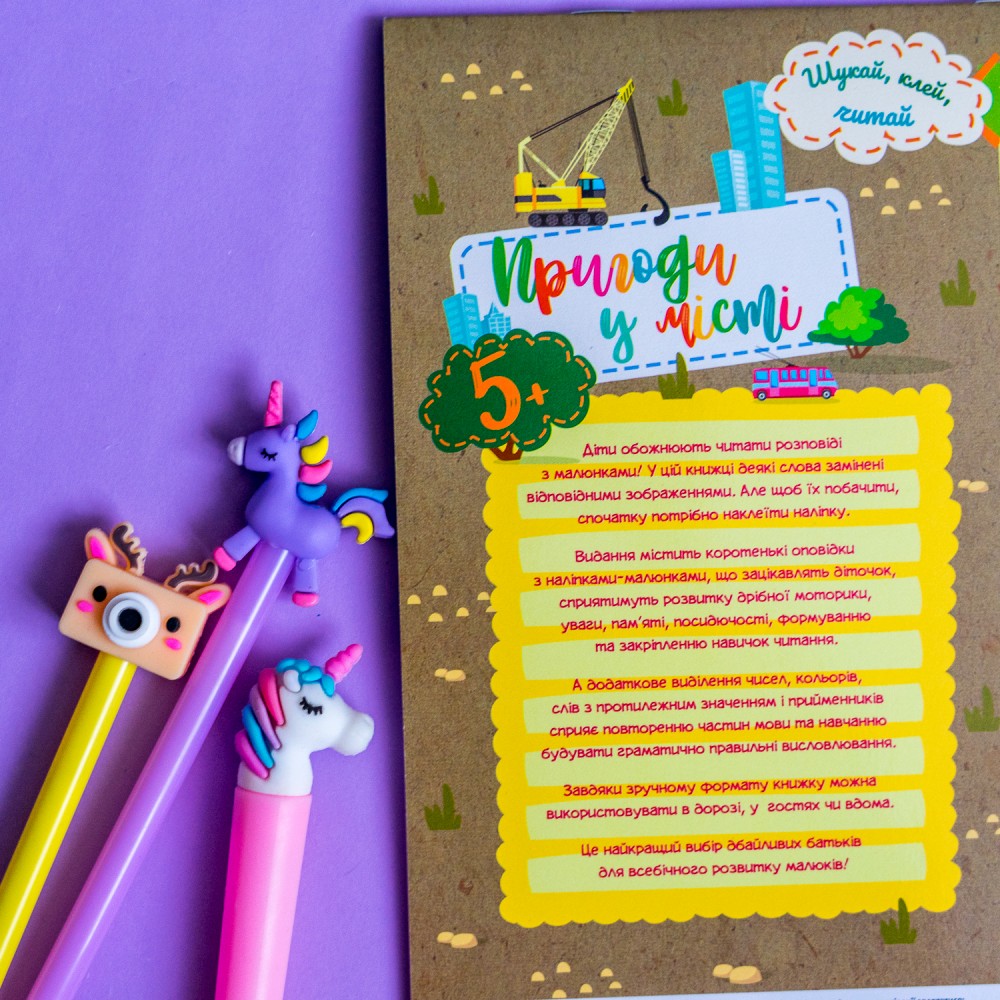 Шукай, клей,
читай
Пригоди
у місті
5+
Діти обожнюють читати розповіді
з малюнками! У цій книжці деякі слова замінені
відповідними зображеннями. Але щоб їх побачити,
спочатку потрібно наклеїти наліпку.
Видання містить коротенькі оповідки
з наліпками-малюнками, що зацікавлять діточок,
сприятимуть розвитку дрібної моторики,
уваги, пам'яті, посидючості, формуванню
та закріпленню навичок читання.
А додаткове виділення чисел, кольорів,
слів з протилежним значенням і прийменників
сприяє повторенню частин мови та навчанню
будувати граматично правильні висловлювання.
Завдяки зручному формату книжку можна
використовувати в дорозі, у гостях чи вдома.
Це найкращий вибір дбайливих батьків
для всебічного розвитку малюків!